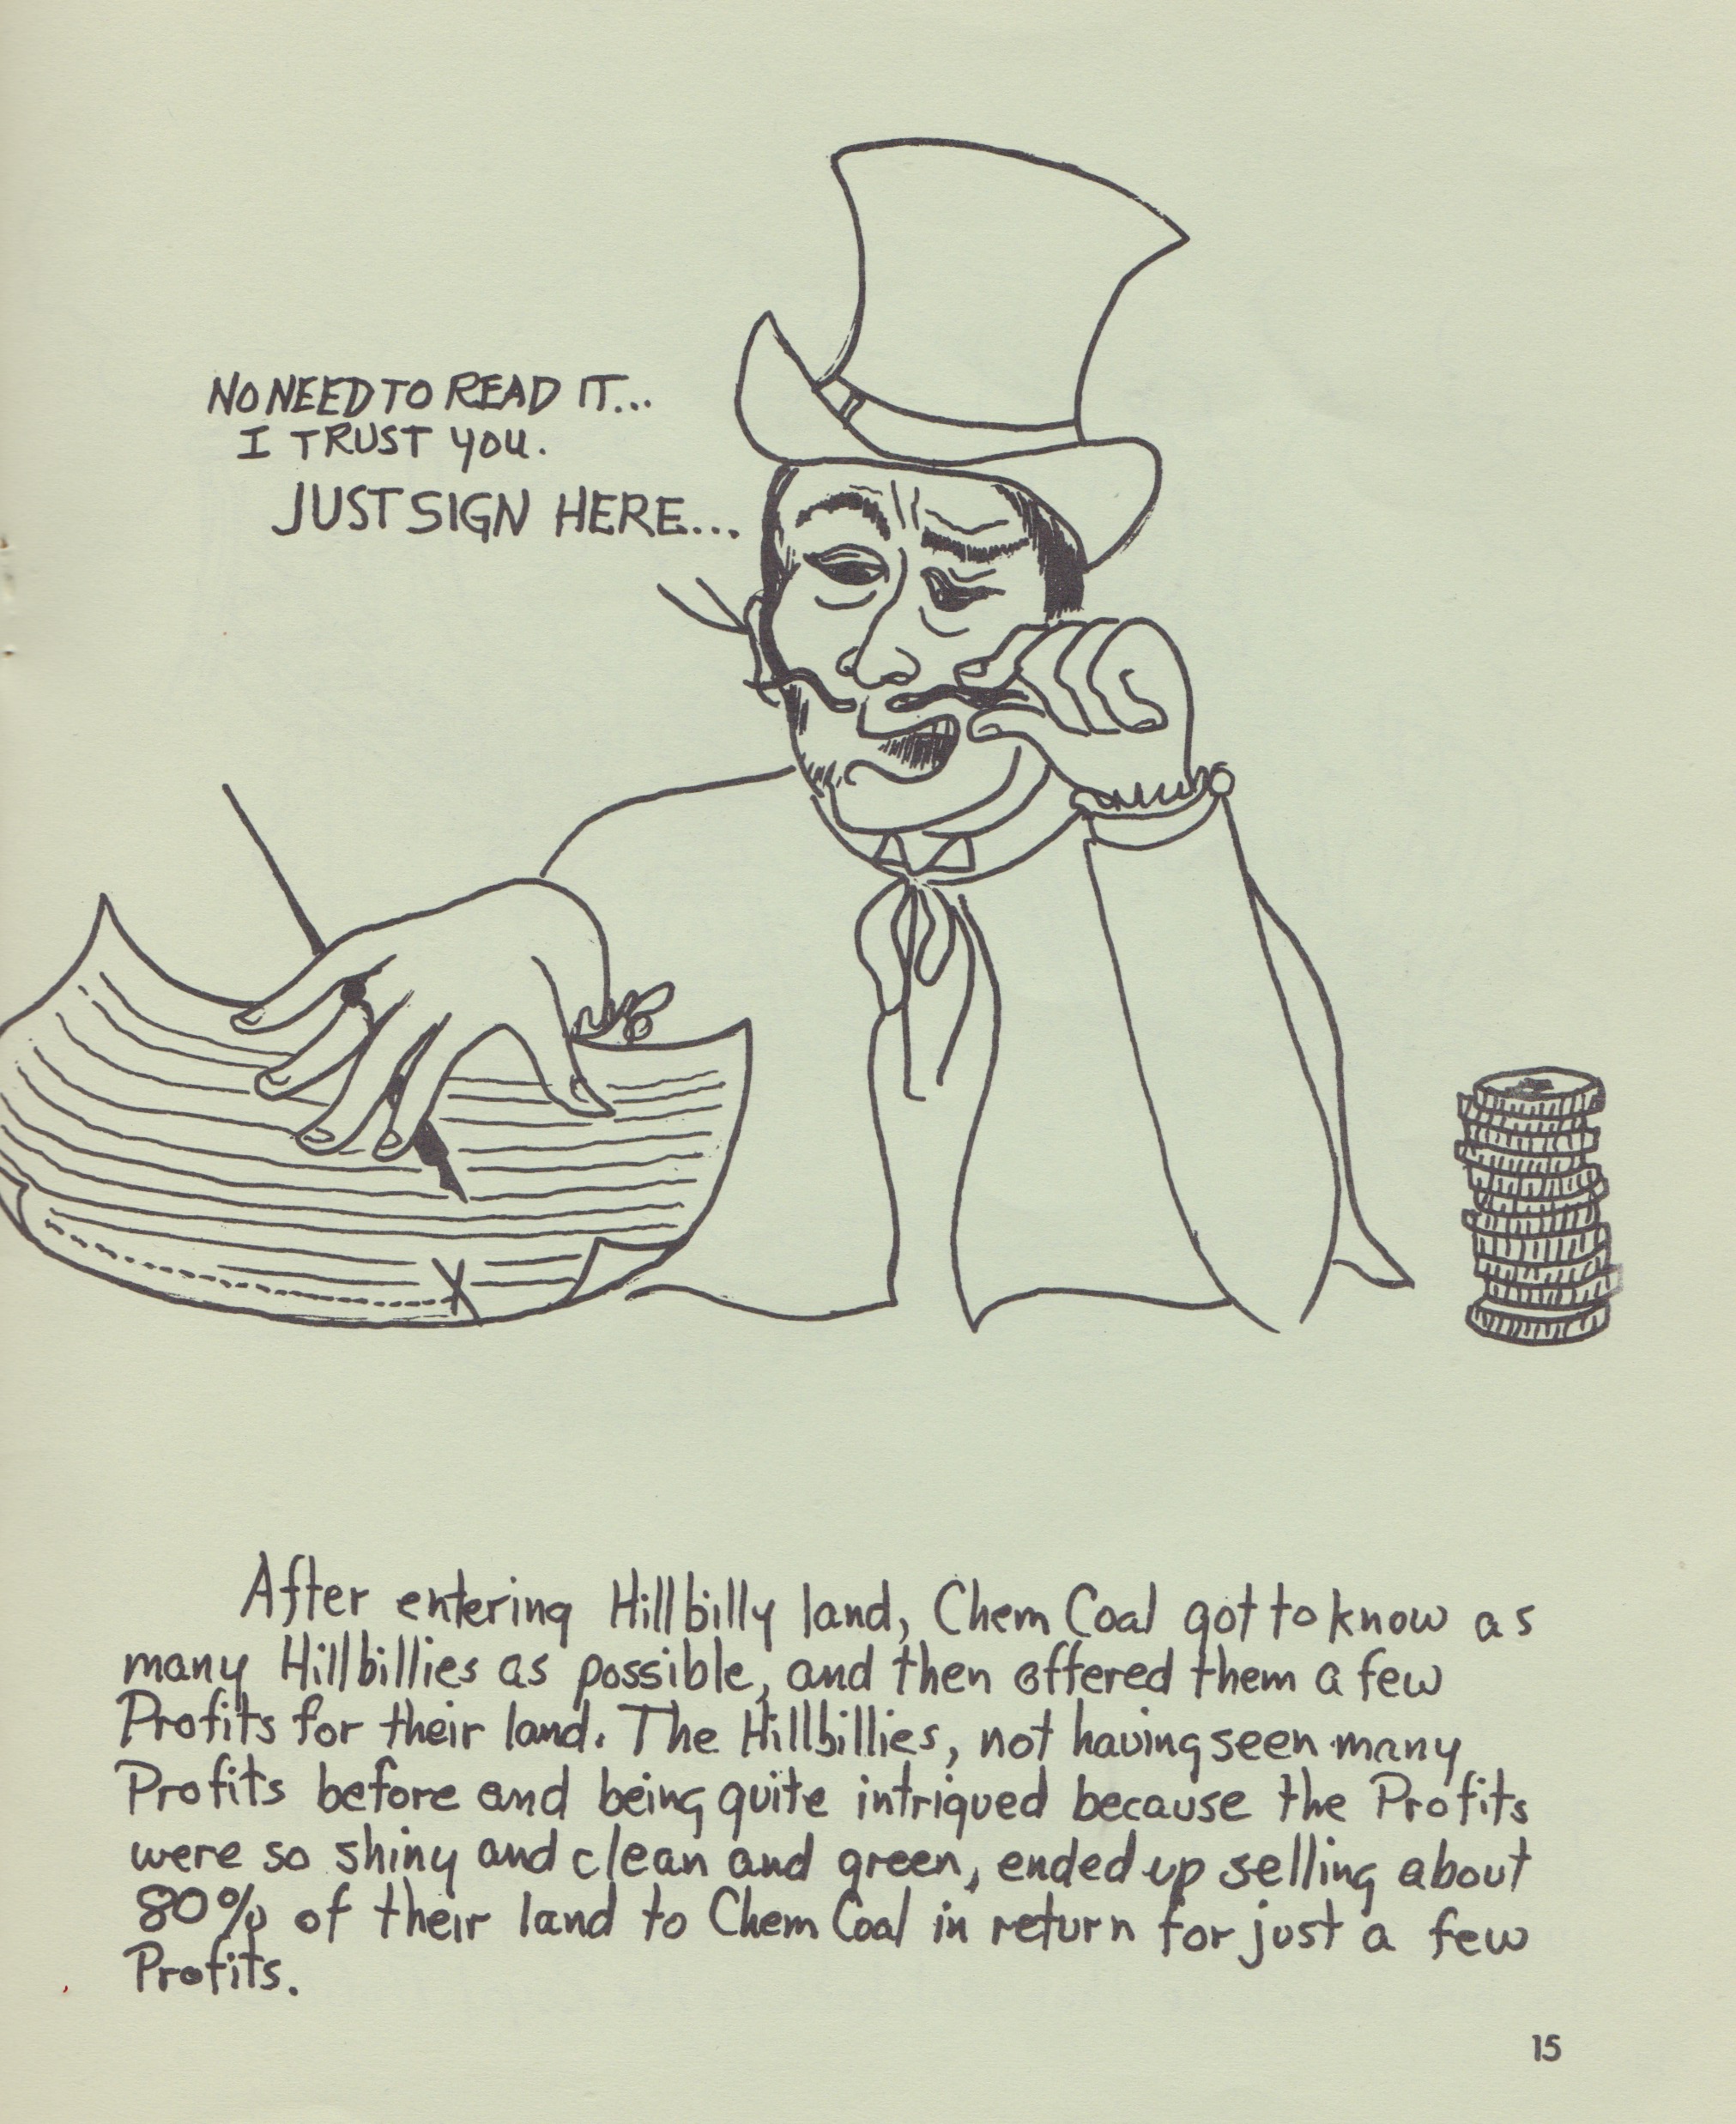 NO NEED TO READ IT...
I TRUST YOU.
JUST SIGN HERE...
X
After entering Hillbilly land, Chem Coal got to know as
many Hillbillies as possible, and then offered them a few
Profits for their land. The Hillbillies, not having seen many
Profits before and being quite intrigued because the Profits
were so shiny and clean and green, ended up selling about
80% of their land to Chem Coal in return for just a few
Profits.
15